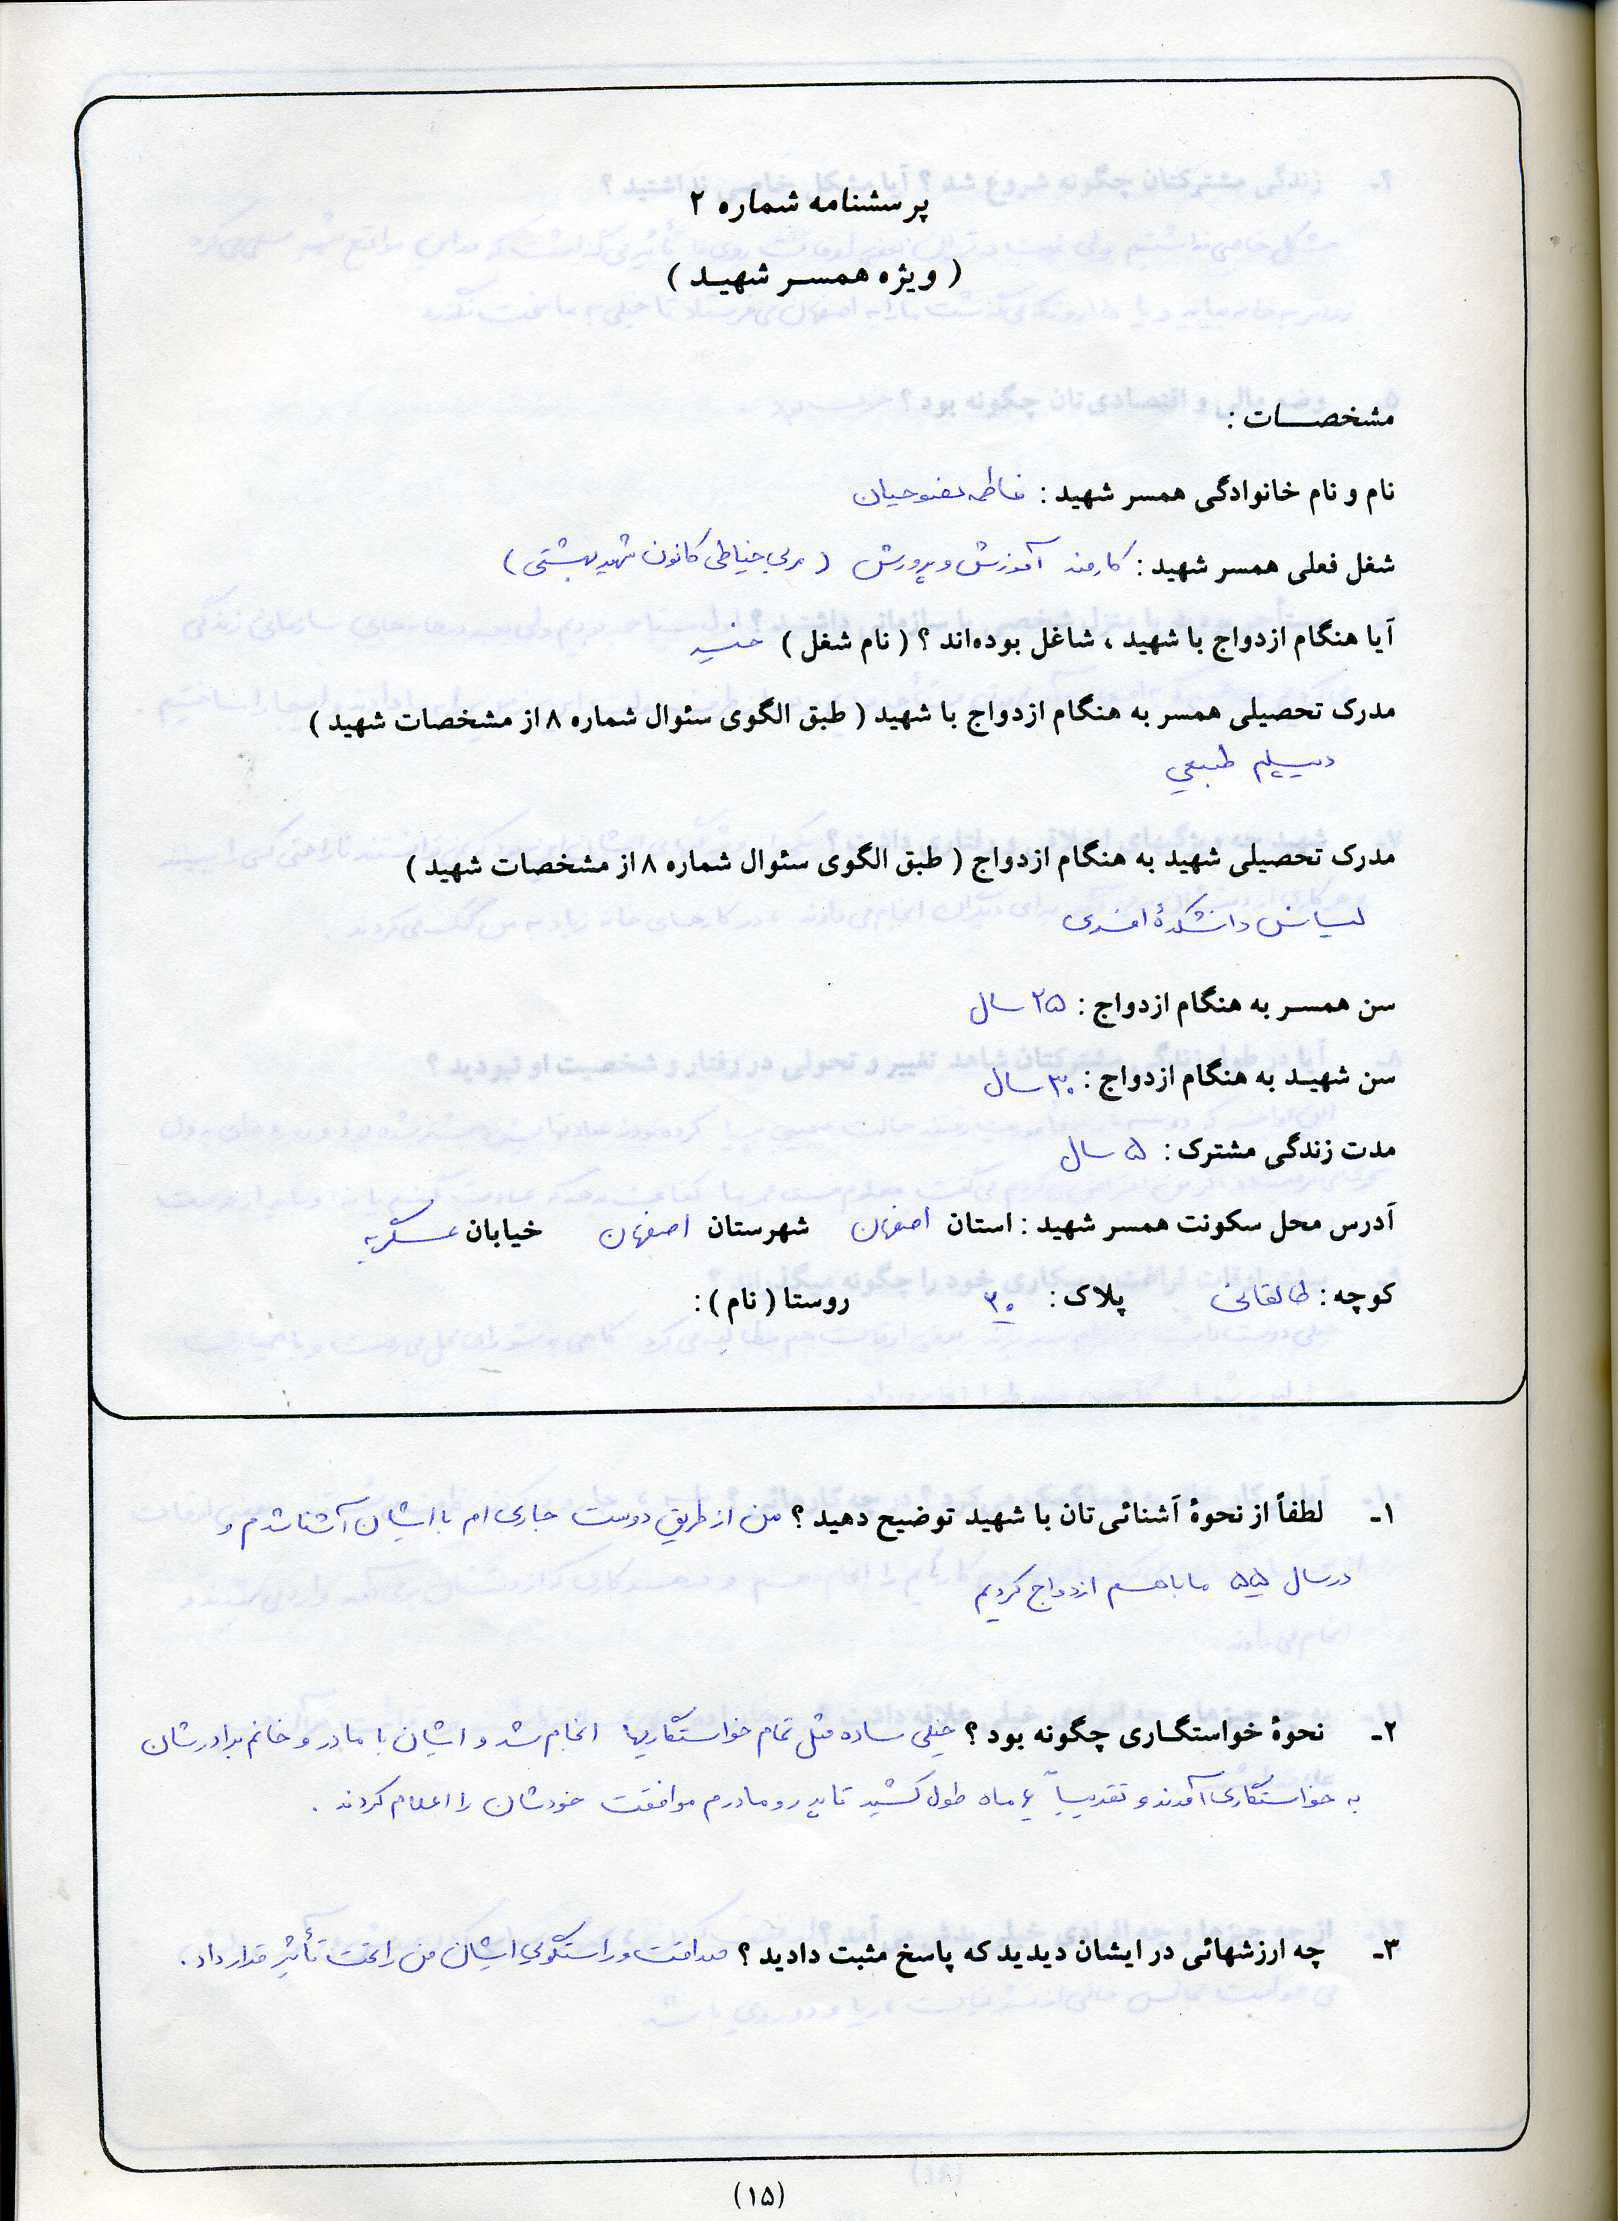 پرسشنامه شماره ۲
( ویژه همسر شهید )
مشخصات :
نام و نام خانوادگی همسر شهید : فاطمه
شغل فعلی همسر شهید : کارمند آموزش و پرورش ( مربی خیاطی کانون شهید بهشتی )
آیا هنگام ازدواج با شهید ، شاغل بوده‌اند ؟ ( نام شغل ) خیر
مدرک تحصیلی همسر به هنگام ازدواج با شهید ( طبق الگوی سئوال شماره ۸ از مشخصات شهید )
دیپلم طبیعی
مدرک تحصیلی شهید به هنگام ازدواج ( طبق الگوی سئوال شماره ۸ از مشخصات شهید )
لیسانس دانشکدهٔ افسری
سن همسر به هنگام ازدواج : ۲۵ سال
سن شهید به هنگام ازدواج : ۳۰ سال
مدت زندگی مشترک : ۵ سال
آدرس محل سکونت همسر شهید : استان اصفهان شهرستان اصفهان خیابان عسگریه
کوچه : طالقانی پلاک : ۳۰ روستا ( نام ) :
۱- لطفاً از نحوهٔ آشنائی تان با شهید توضیح دهید ؟ من از طریق دوست جاری ام با ایشان آشنا شدم و
در سال ۵۵ ما باهم ازدواج کردیم
۲- نحوهٔ خواستگاری چگونه بود ؟ خیلی ساده مثل تمام خواستگاریها انجام شد و ایشان با مادر و خانم برادرشان
به خواستگاری آمدند و تقریباً ۶ ماه طول کشید تا پدر و مادرم موافقت خودشان را اعلام کردند .
۳- چه ارزشهائی در ایشان دیدید که پاسخ مثبت دادید ؟ صداقت و راستگویی ایشان من را تحت تأثیر قرار داد .
(۱۵)